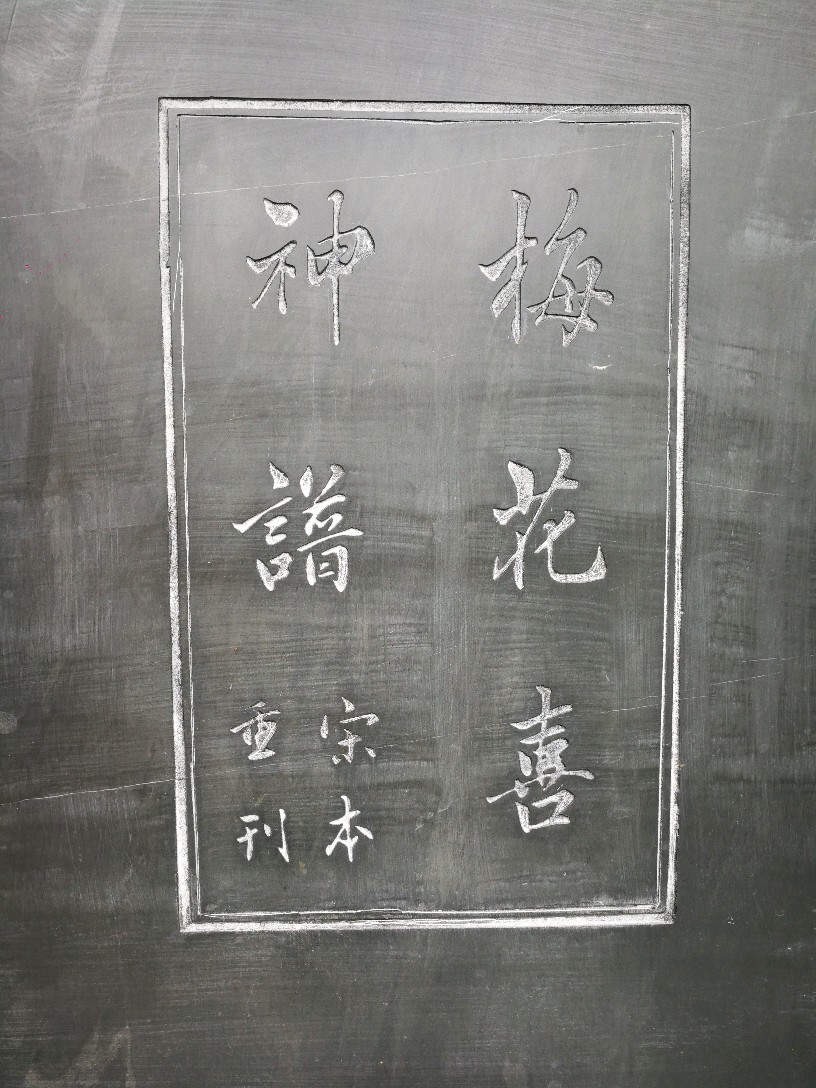 梅花喜
神譜
宋本
重刊